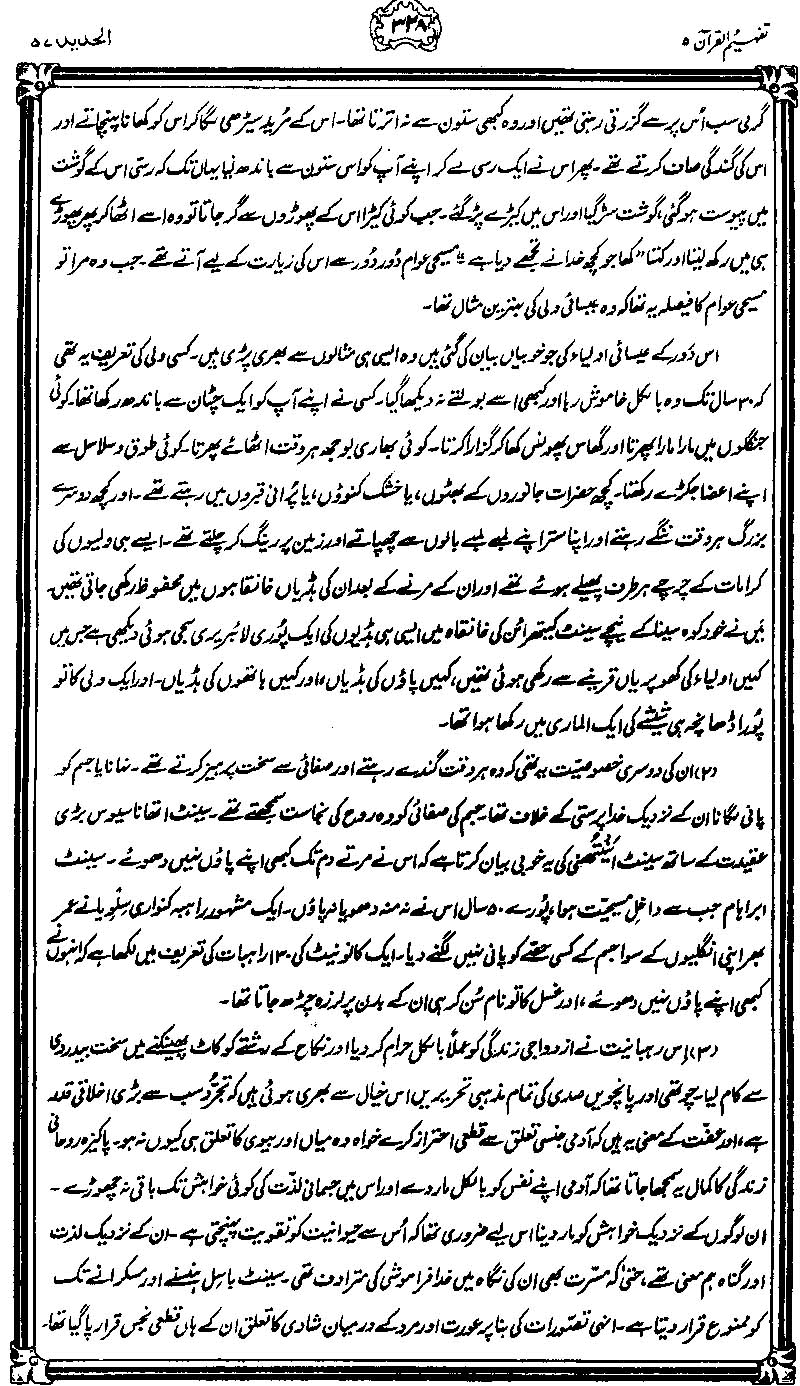 تفہیم القرآن ۵
۳۲۸
الحدید ۵۷
گرمی سب اُس پر سے گزرتی رہتی تھیں اور وہ کبھی ستون سے نہ اترتا تھا۔ اس کے مُرید سیڑھی لگا کر اس کو کھانا پہنچاتے اور
اس کی گندگی صاف کرتے تھے۔ پھر اس نے ایک رسی لے کر اپنے آپ کو اس ستون سے باندھ لیا یہاں تک کہ رسی اس کے گوشت
میں پیوست ہو گئی، گوشت سڑ گیا اور اس میں کیڑے پڑ گئے۔ جب کوئی کیڑا اس کے پھوڑوں سے گر جاتا تو وہ اسے اٹھا کر پھر پھوڑے
ہی میں رکھ لیتا اور کہتا ”کھا جو کچھ خدا نے تجھے دیا ہے“۔ مسیحی عوام دُور دُور سے اس کی زیارت کے لیے آتے تھے۔ جب وہ مرا تو
مسیحی عوام کا فیصلہ یہ تھا کہ وہ عیسائی ولی کی بہترین مثال تھا۔
اس دَور کے عیسائی اولیاء کی جو خوبیاں بیان کی گئی ہیں وہ ایسی ہی مثالوں سے بھری پڑی ہیں۔ کسی ولی کی تعریف یہ تھی
کہ ۳۰ سال تک وہ بالکل خاموش رہا اور کبھی اسے بولتے نہ دیکھا گیا۔ کسی نے اپنے آپ کو ایک چٹان سے باندھ رکھا تھا۔ کوئی
جنگلوں میں مارا مارا پھرتا اور گھاس پھونس کھا کر گزارا کرتا۔ کوئی بھاری بوجھ ہر وقت اٹھائے پھرتا۔ کوئی طوق و سلاسل سے
اپنے اعضا جکڑے رکھتا۔ کچھ حضرات جانوروں کے بھٹوں، یا خشک کنوؤں، یا پُرانی قبروں میں رہتے تھے۔ اور کچھ دوسرے
بزرگ ہر وقت ننگے رہتے اور اپنا ستر اپنے لمبے لمبے بالوں سے چھپاتے اور زمین پر رینگ کر چلتے تھے۔ ایسے ہی ولیوں کی
کرامات کے چرچے ہر طرف پھیلے ہوئے تھے اور ان کے مرنے کے بعد ان کی ہڈیاں خانقاہوں میں محفوظ رکھی جاتی تھیں۔
میں نے خود کوہ سینا کے نیچے سینٹ کیتھرائن کی خانقاہ میں ایسی ہی ہڈیوں کی ایک پُوری لائبریری سجی ہوئی دیکھی ہے جس میں
کہیں اولیاء کی کھوپریاں قرینے سے رکھی ہوئی تھیں، کہیں پاؤں کی ہڈیاں، اور کہیں ہاتھوں کی ہڈیاں۔ اور ایک ولی کا تو
پُورا ڈھانچہ ہی شیشے کی ایک الماری میں رکھا ہوا تھا۔
(۲) ان کی دوسری خصوصیت یہ تھی کہ وہ ہر وقت گندے رہتے اور صفائی سے سخت پرہیز کرتے تھے۔ نہانا یا جسم کو
پانی لگانا ان کے نزدیک خدا پرستی کے خلاف تھا۔ جسم کی صفائی کو وہ روح کی نجاست سمجھتے تھے۔ سینٹ اتھاناسیوس بڑی
عقیدت کے ساتھ سینٹ اینٹھنی کی یہ خوبی بیان کرتا ہے کہ اس نے مرتے دم تک کبھی اپنے پاؤں نہیں دھوئے۔ سینٹ
ابراہام جب سے داخلِ مسیحیّت ہوا، پُورے ۵۰ سال اس نے نہ منہ دھویا نہ پاؤں۔ ایک مشہور راہبہ کنواری سِلویا نے عمر
بھر اپنی انگلیوں کے سوا جسم کے کسی حصّے کو پانی نہیں لگنے دیا۔ ایک کانونیٹ کی ۱۳۰ راہبات کی تعریف میں لکھا ہے کہ انہوں نے
کبھی اپنے پاؤں نہیں دھوئے، اور غسل کا تو نام سُن کر ہی ان کے بدن پر لرزہ چڑھ جاتا تھا۔
(۳) اِس رہبانیت نے ازدواجی زندگی کو عملاً بالکل حرام کر دیا اور نکاح کے رشتے کو کاٹ پھینکنے میں سخت بیدردی
سے کام لیا۔ چوتھی اور پانچویں صدی کی تمام مذہبی تحریریں اس خیال سے بھری ہوئی ہیں کہ تجرُّد سب سے بڑی اخلاقی قدر
ہے، اور عفّت کے معنی یہ ہیں کہ آدمی جنسی تعلق سے قطعی احتراز کرے خواہ وہ میاں اور بیوی کا تعلق ہی کیوں نہ ہو۔ پاکیزہ روحانی
زندگی کا کمال یہ سمجھا جاتا تھا کہ آدمی اپنے نفس کو بالکل مار دے اور اس میں جسمانی لذّت کی کوئی خواہش تک باقی نہ چھوڑے۔
ان لوگوں کے نزدیک خواہش کو مار دینا اس لیے ضروری تھا کہ اُس سے حیوانیت کو تقویت پہنچتی ہے۔ ان کے نزدیک لذت
اور گناہ ہم معنی تھے، حتیٰ کہ مسرّت بھی ان کی نگاہ میں خدا فراموشی کی مترادف تھی۔ سینٹ باسِل ہنسنے اور مسکرانے تک
کو ممنوع قرار دیتا ہے۔ انہی تصورات کی بنا پر عورت اور مرد کے درمیان شادی کا تعلق ان کے ہاں قطعی نجس قرار پا گیا تھا۔